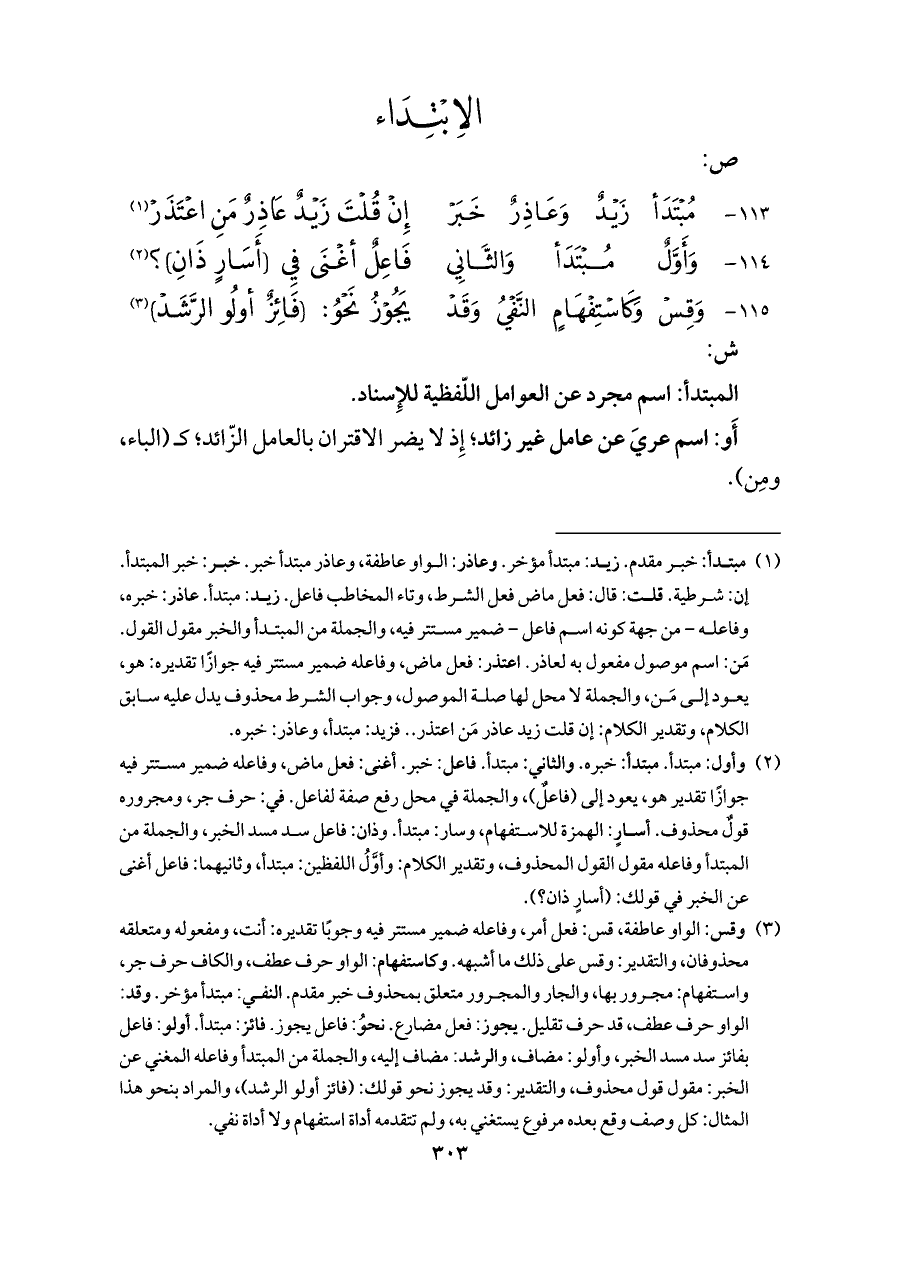 الاِبْتِدَاء
ص:
١١٣- مُبْتَدَأ زَيْدٌ وَعَاذِرٌ خَبَرْ إِنْ قُلْتَ زَيْدٌ عَاذِرٌ مَنِ اعْتَذَرْ(١)
١١٤- وَأَوَّلٌ مُبْتَدَأ وَالثَّانِي فَاعِلٌ أغْنَى فِي (أَسَارٍ ذَانِ)؟(٢)
١١٥- وَقِسْ وَكَاسْتِفْهَامٍ النَّفْيُ وَقَدْ يَجُوْزُ نَحْوُ: (فَائِزٌ أولُو الرَّشَدْ)(٣)
ش:
المبتدأ: اسم مجرد عن العوامل اللّفظية للإِسناد.
أَو: اسم عريَ عن عامل غير زائد؛ إِذ لا يضر الاقتران بالعامل الزّائد؛ كـ (الباء،
ومِن).
(١) مبتدأ: خبر مقدم. زيد: مبتدأ مؤخر. وعاذر: الواو عاطفة، وعاذر مبتدأ خبر. خبر: خبر المبتدأ.
إن: شرطية. قلت: قال: فعل ماض فعل الشرط، وتاء المخاطب فاعل. زيد: مبتدأ. عاذر: خبره،
وفاعله – من جهة كونه اسم فاعل – ضمير مستتر فيه، والجملة من المبتدأ والخبر مقول القول.
مَن: اسم موصول مفعول به لعاذر. اعتذر: فعل ماض، وفاعله ضمير مستتر فيه جوازًا تقديره: هو،
يعود إلى مَن، والجملة لا محل لها صلة الموصول، وجواب الشرط محذوف يدل عليه سابق
الكلام، وتقدير الكلام: إن قلت زيد عاذر مَن اعتذر.. فزيد: مبتدأ، وعاذر: خبره.
(٢) وأول: مبتدأ. مبتدأ: خبره. والثاني: مبتدأ. فاعل: خبر. أغنى: فعل ماض، وفاعله ضمير مستتر فيه
جوازًا تقدير هو، يعود إلى (فاعلٌ)، والجملة في محل رفع صفة لفاعل. في: حرف جر، ومجروره
قولٌ محذوف. أسارٍ: الهمزة للاستفهام، وسار: مبتدأ. وذان: فاعل سد مسد الخبر، والجملة من
المبتدأ وفاعله مقول القول المحذوف، وتقدير الكلام: وأوَّلُ اللفظين: مبتدأ، وثانيهما: فاعل أغنى
عن الخبر في قولك: (أسارٍ ذان؟).
(٣) وقس: الواو عاطفة، قس: فعل أمر، وفاعله ضمير مستتر فيه وجوبًا تقديره: أنت، ومفعوله ومتعلقه
محذوفان، والتقدير: وقس على ذلك ما أشبهه. وكاستفهام: الواو حرف عطف، والكاف حرف جر،
واستفهام: مجرور بها، والجار والمجرور متعلق بمحذوف خبر مقدم. النفي: مبتدأ مؤخر. وقد:
الواو حرف عطف، قد حرف تقليل. يجوز: فعل مضارع. نحوُ: فاعل يجوز. فائز: مبتدأ. أولو: فاعل
بفائز سد مسد الخبر، وأولو: مضاف، والرشد: مضاف إليه، والجملة من المبتدأ وفاعله المغني عن
الخبر: مقول قول محذوف، والتقدير: وقد يجوز نحو قولك: (فائز أولو الرشد)، والمراد بنحو هذا
المثال: كل وصف وقع بعده مرفوع يستغني به، ولم تتقدمه أداة استفهام ولا أداة نفي.
٣٠٣